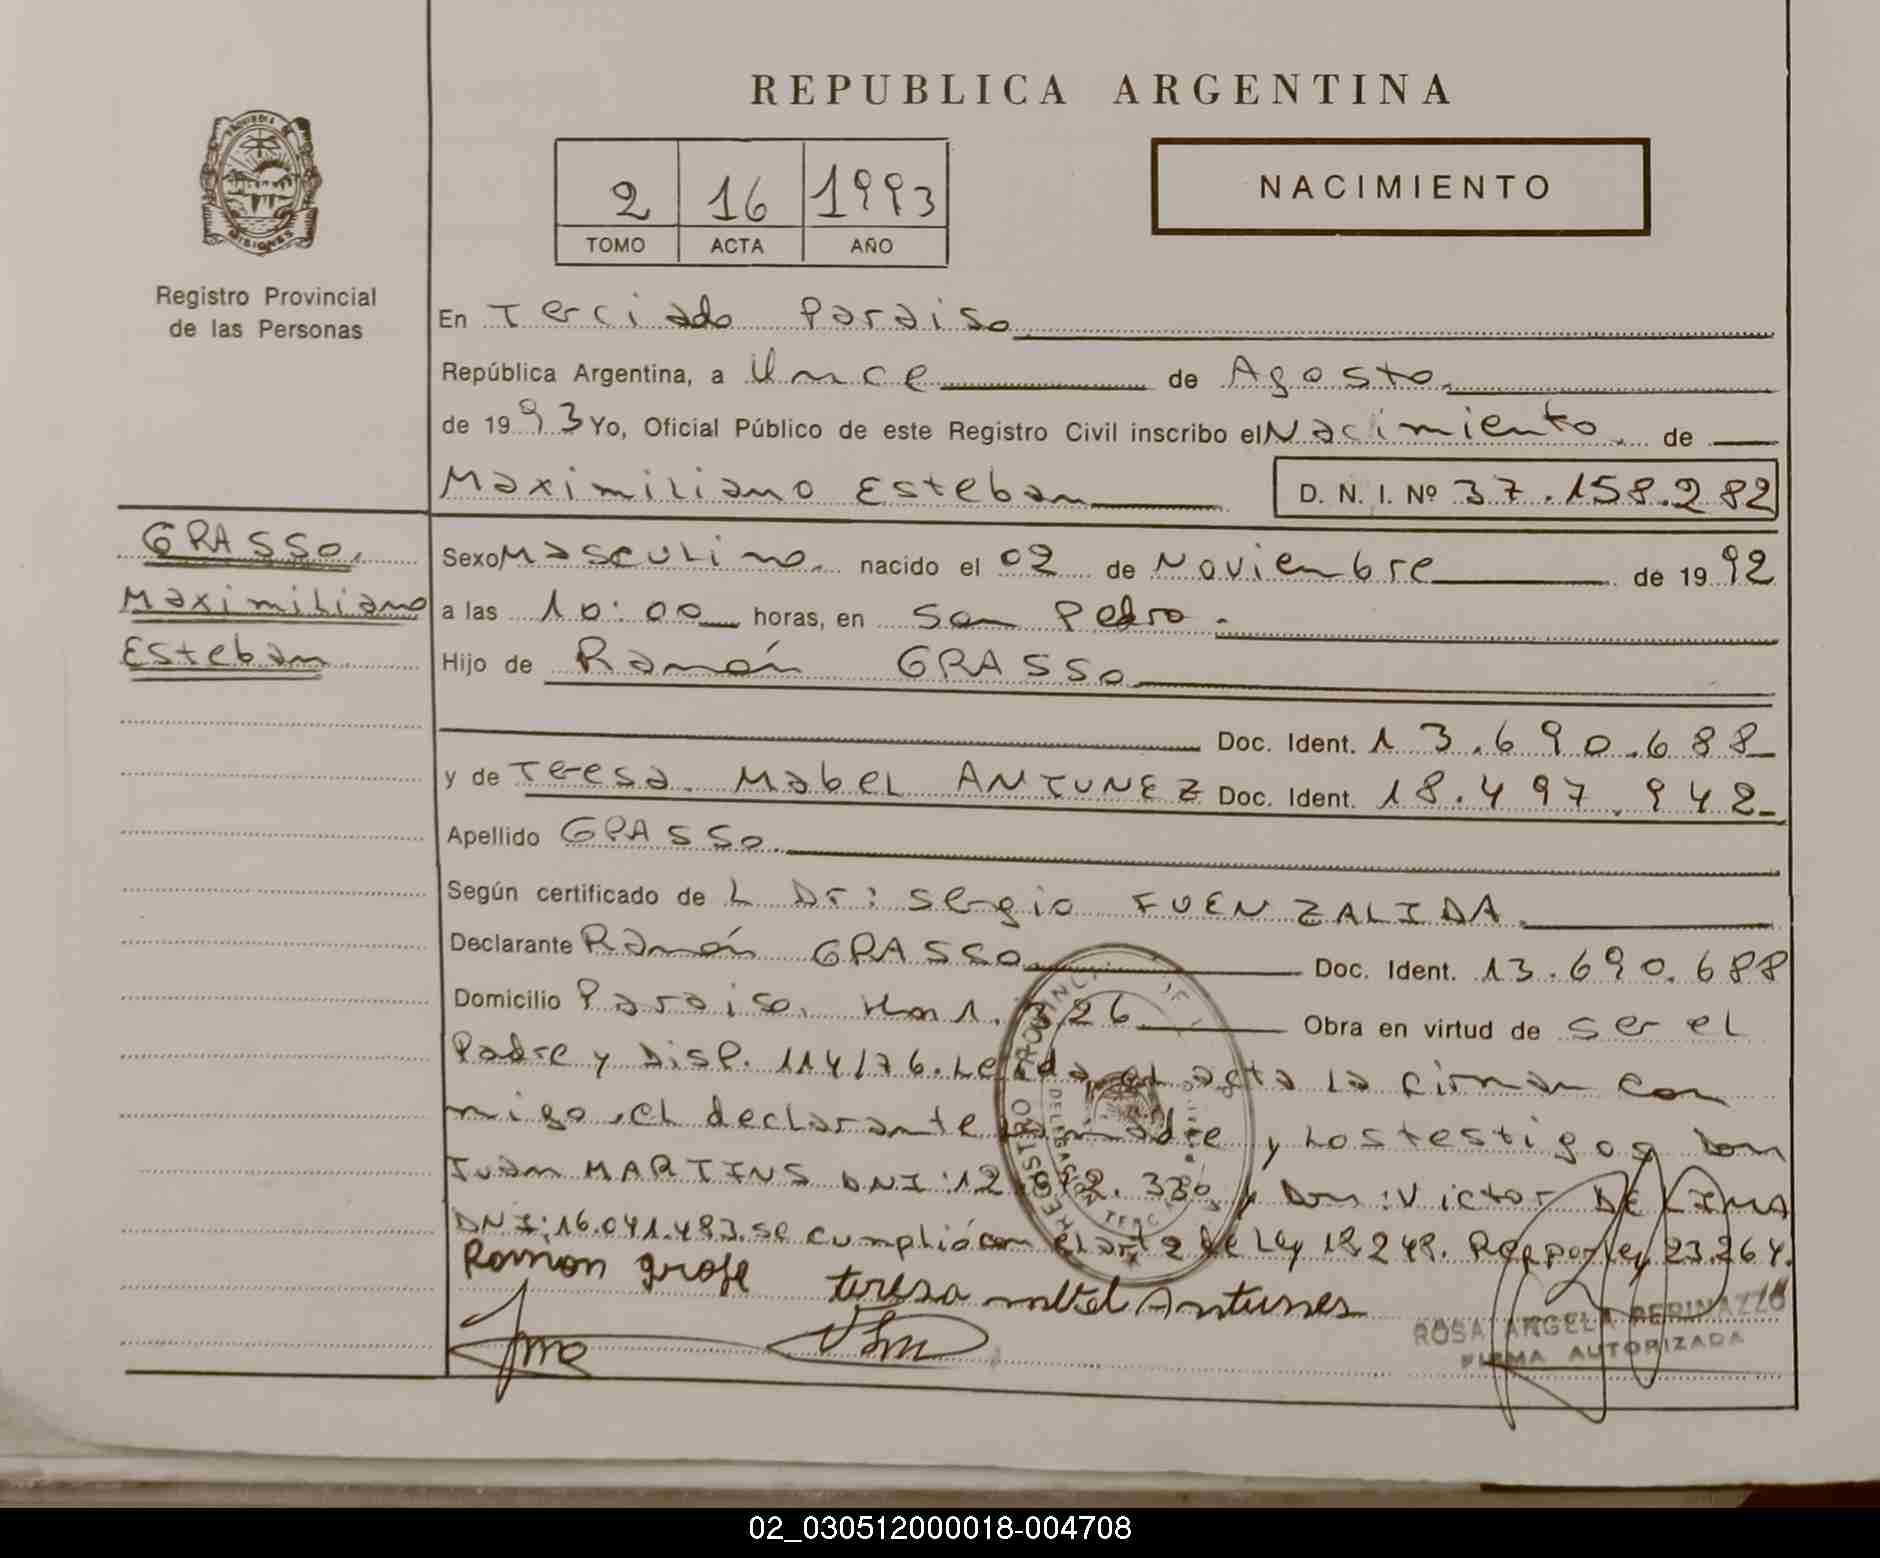 REPUBLICA ARGENTINA
PROVINCIA DE
MISIONES
Registro Provincial
de las Personas
2 16 1993
TOMO ACTA AÑO
NACIMIENTO
En Terciado Paraiso
República Argentina, a Once de Agosto
de 1993 Yo, Oficial Público de este Registro Civil inscribo el Nacimiento de
Maximiliano Esteban D. N. I. Nº 37.158.282
GRASSO.
Maximiliano
Esteban
Sexo Masculino. nacido el 02 de Noviembre de 1992
a las 10:00 horas, en San Pedro.
Hijo de Ramón GRASSO
Doc. Ident. 13.690.688
y de Teresa Mabel ANTUNEZ Doc. Ident. 18.497.942
Apellido GRASSO.
Según certificado de L Dr: Sergio FUENZALIDA.
Declarante Ramón GRASSO Doc. Ident. 13.690.688
Domicilio Paraiso. Km 1.326 Obra en virtud de ser el
Padre y Disp. 114/76. Leida el acta la firman con
migo, el declarante la madre y los testigos Don
Juan MARTINS DNI:12. y Don: Victor DE LIMA
DNI:16.041.483. se cumplió con el art 2 de Ley 18.248. Rep por ley 23.264.
Ramon
teresa mabel Antunes
ROSA ANGELA BERINAZZO
FIRMA AUTORIZADA
REGISTRO PROVINCIAL DE L
DELEGACION TERC
02_030512000018-004708